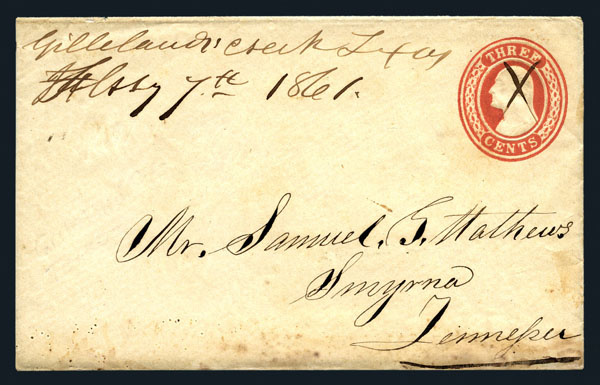 Gillelands' Creek Texas
7th 1861.
THREE
CENTS
Mr. Samuel. G. Mathews
Smyrna
Tennessee